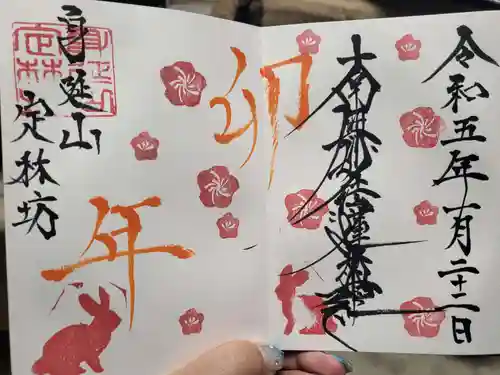 令和五年一月二十二日
南無妙法蓮華経
卯
年
身延山
定林坊